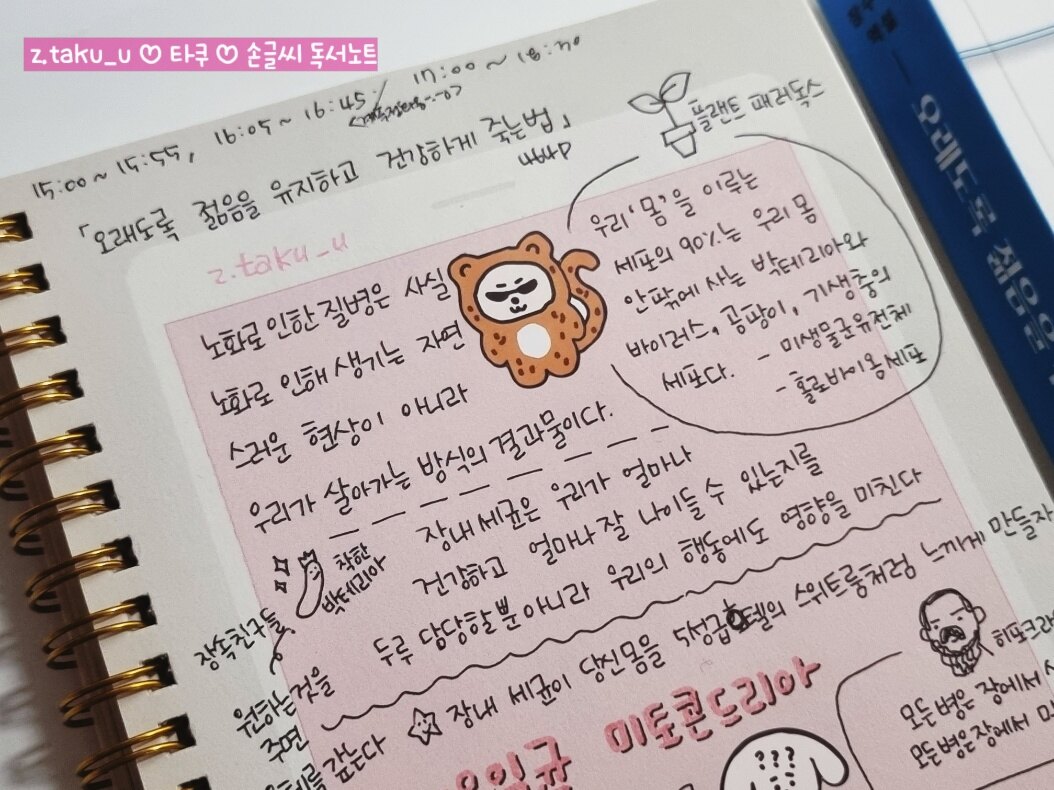 z.taku_u ♡ 타쿠 ♡ 손글씨 독서노트
15:00 ~ 15:55, 16:05 ~ 16:45 / 17:00 ~ 18:20
「오래도록 젊음을 유지하고 건강하게 죽는법」
464P
플랜트 패러독스
z.taku_u
우리 '몸'을 이루는
세포의 90%는 우리 몸
안팎에 사는 박테리아와
바이러스, 곰팡이, 기생충의
세포다.
- 미생물군유전체
- 홀로바이옴세포
노화로 인한 질병은 사실
노화로 인해 생기는 자연
스러운 현상이 아니라
우리가 살아가는 방식의 결과물이다.
장내 세균은 우리가 얼마나
건강하고 얼마나 잘 나이들 수 있는지를
두루 담당할뿐아니라 우리의 행동에도 영향을 미친다
착한
박테리아
장속친구들
원하는것을
주면
갚는다
☆ 장내 세균이 당신몸을 5성급호텔의 스위트룸처럼 느끼게 만들자
미토콘드리아
???
모든병은 장에서
모든병은장에서
오래도록 젊음을